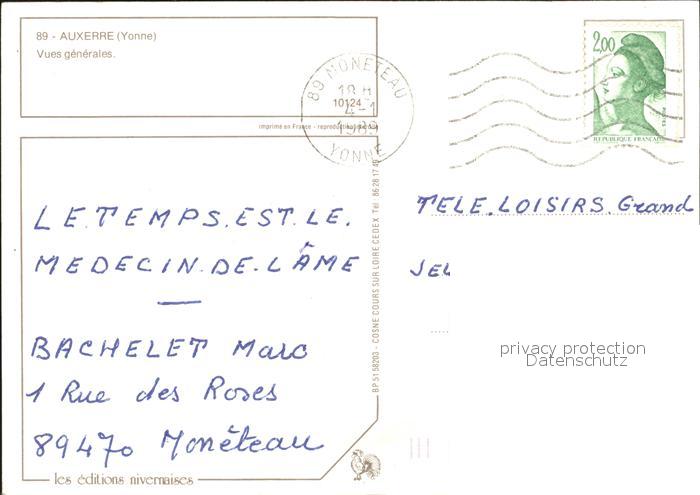 89 - AUXERRE (Yonne)
Vues générales.
89 MONETEAU
18 H
10124
4-1
YONNE
2,00
REPUBLIQUE FRANÇAISE
imprimé en France - reproduction interdite
LE.TEMPS.EST.LE.
MEDECIN.DE.L'ÂME
BACHELET Marc
1 Rue des Roses
89470 Monéteau
les éditions nivernaises
BP 51 58203 - COSNE COURS SUR LOIRE CEDEX Tél. 86 28 17 49
TELE.LOISIRS.Grand
JEU
privacy protection
Datenschutz